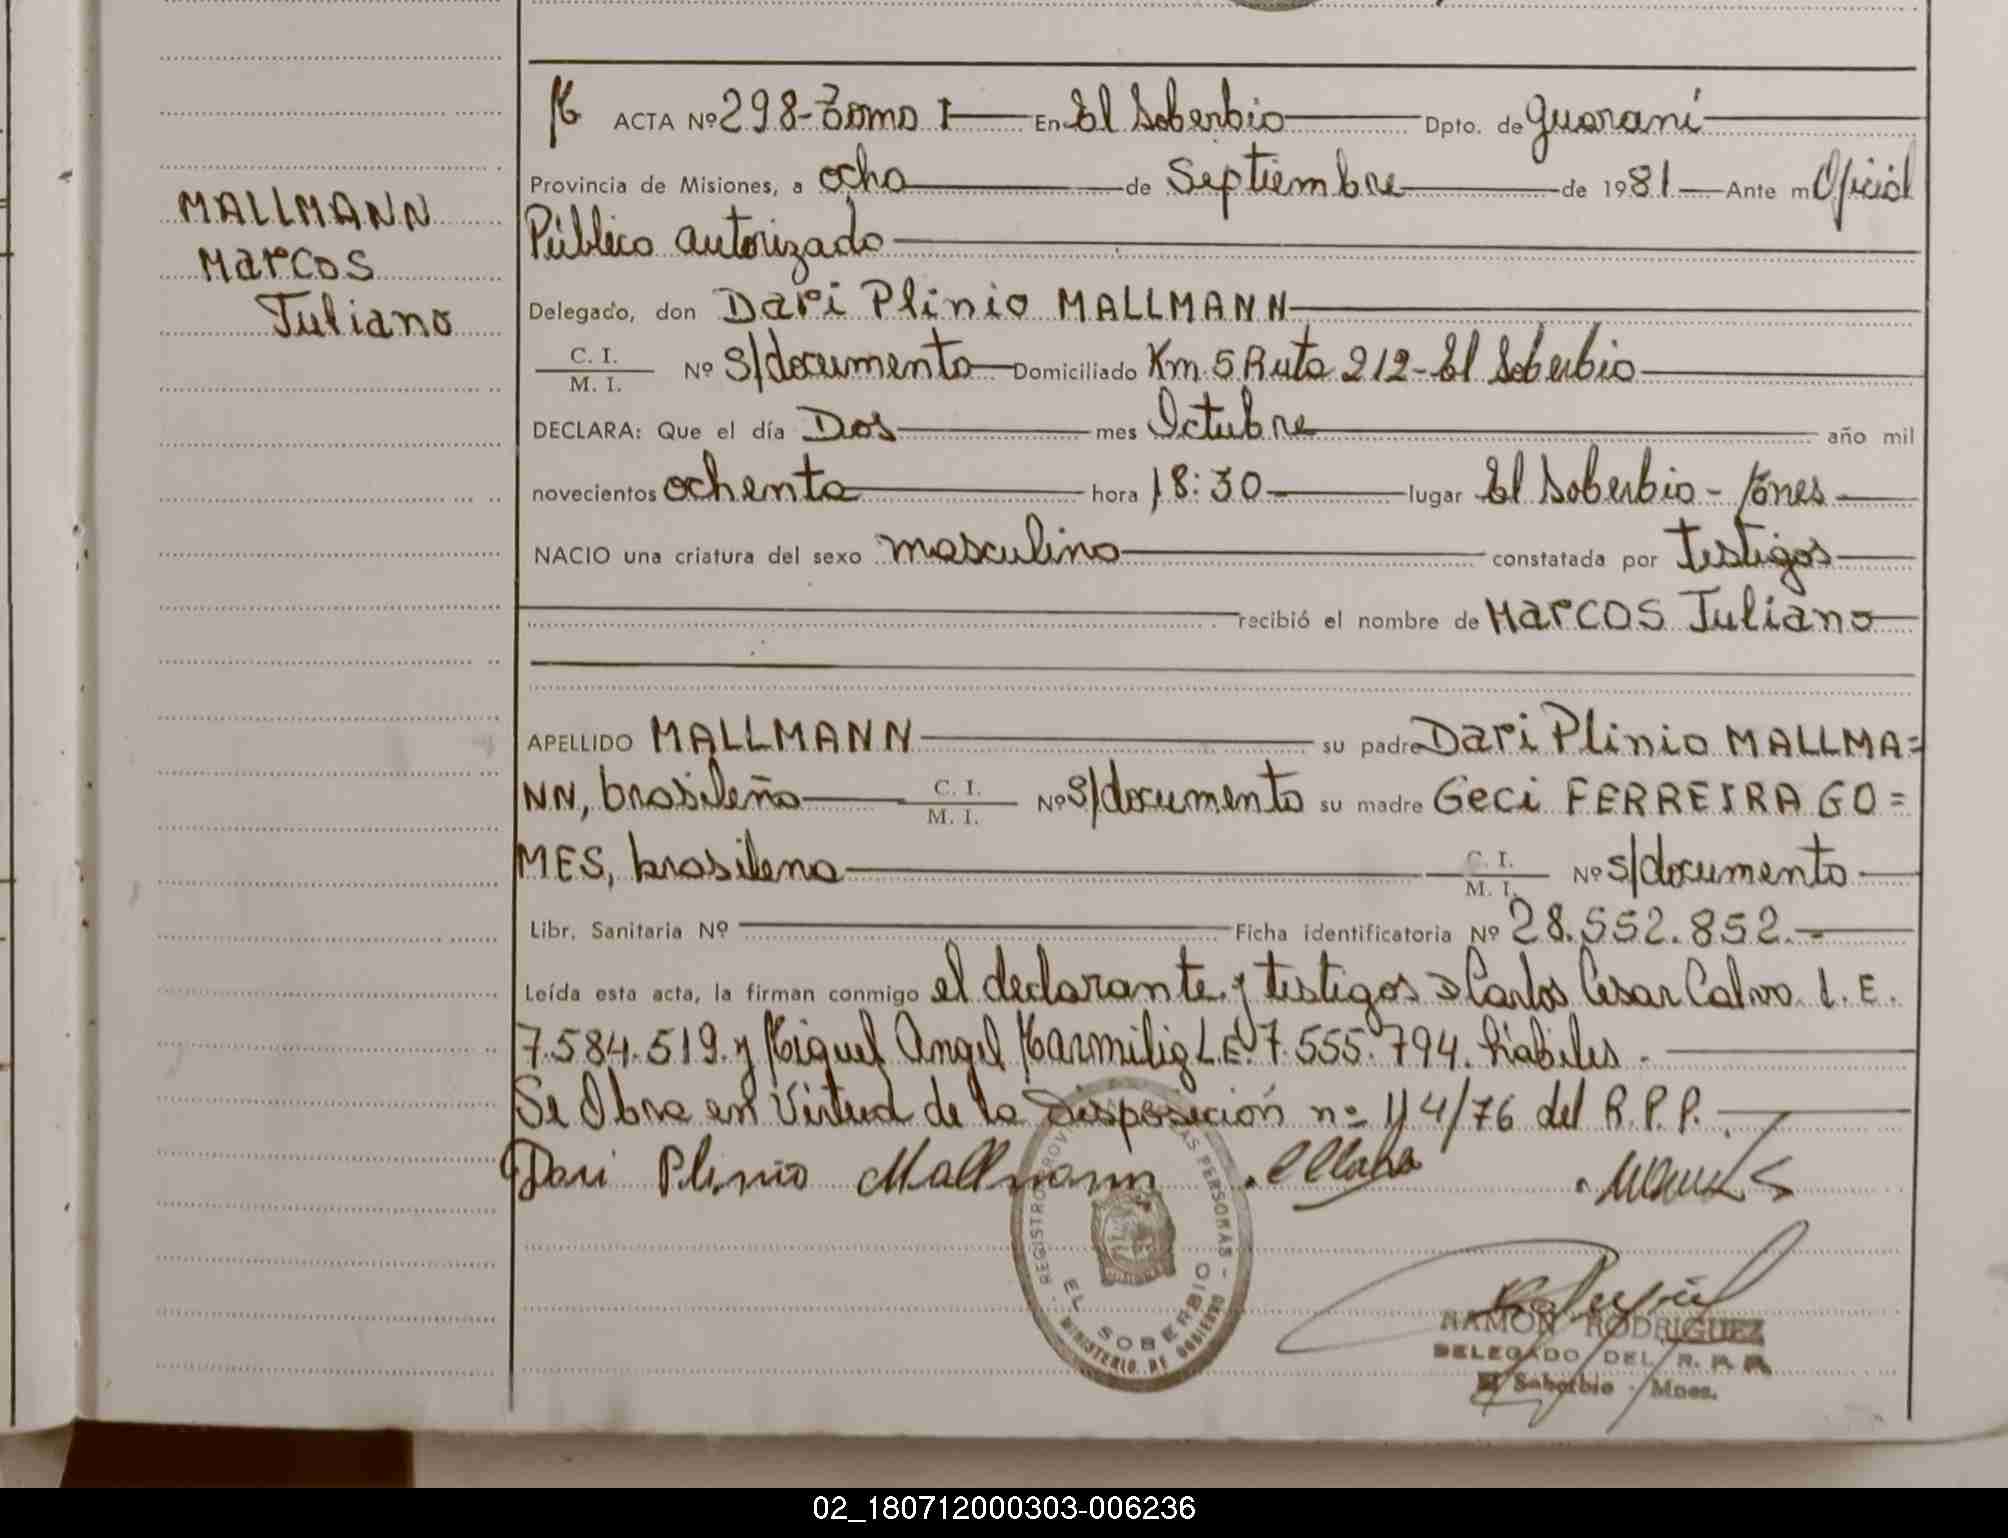 MALLMANN
Marcos
Juliano
ACTA Nº 298-Tomo I En El Soberbio Dpto. de Guaraní
Provincia de Misiones, a ocho de Septiembre de 1981 Ante m Oficial
Público autorizado
Delegado, don Dari Plinio MALLMANN
C. I.
M. I. Nº S/documento Domiciliado Km. 5 Ruta 212-El Soberbio
DECLARA: Que el día Dos mes Octubre año mil
novecientos ochenta hora 18:30 lugar El Soberbio-
NACIO una criatura del sexo masculino constatada por testigos
recibió el nombre de Marcos Juliano
APELLIDO MALLMANN su padre Dari Plinio MALLMA=
NN, brasileño C. I.
M. I. Nº S/documento su madre Geci FERREIRA GO=
MES, brasilena C. I.
M. I. Nº S/documento
Libr. Sanitaria Nº Ficha identificatoria Nº 28.552.852.-
Leída esta acta, la firman conmigo el declarante y testigos D Carlos Cesar Calvo L.E.
7.584.519. y Miguel Angel L.E. 7.555.794. hábiles.
Se Obra en Virtud de la Disposición nº 114/76 del R.P.P.
Dari Plinio Mallmann
REGISTRO PROVINCIAL DE LAS PERSONAS
EL SOBERBIO
MINISTERIO DE GOBIERNO
RAMON RODRIGUEZ
DELEGADO DEL R. P. P.
El Soberbio - Mnes.
02_180712000303-006236